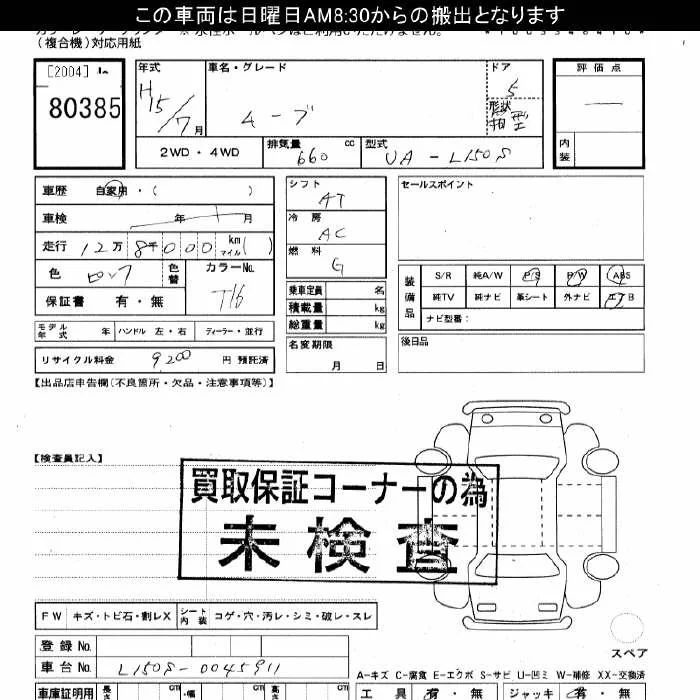 この車両は日曜日AM8:30からの搬出となります
(複合機)対応用紙
[2004]
80385
年式
H15/7月
車名・グレード
ムーブ
ドア
5
形状
箱型
評価点
内装
2WD・4WD
排気量 660 cc
型式 UA-L150S
車歴 自家用・( )
車検 年 月
走行 12万8千000 km マイル( )
色
色替
カラーNo.
T16
保証書 有・無
モデル年式 年
ハンドル 左・右
ディーラー・並行
リサイクル料金 9200 円 預託済
シフト
AT
冷房
AC
燃料
G
乗車定員 名
積載量 kg
総重量 kg
名変期限
月 日
セールスポイント
装備品
S/R 純A/W P/S P/W ABS
純TV 純ナビ 革シート 外ナビ エアB
ナビ型番:
後日品
【出品店申告欄(不良箇所・欠品・注意事項等)】
【検査員記入】
買取保証コーナーの為
未検査
FW キズ・トビ石・割レX
シート内装 コゲ・穴・汚レ・シミ・破レ・スレ
スペア
登録No.
車台No. L150S-0045911
A-キズ C-腐食 E-エクボ S-サビ U-凹ミ W-補修 XX-交換済
車庫証明用 長さ cm 幅 cm 高さ cm
工具 有・無 ジャッキ 有・無